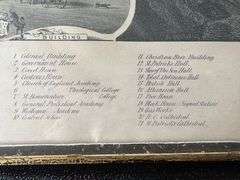 BUILDING
1 Colonial Building
2 Government House
3 Court House
4 Customs House
5 Church of England Academy
6 " Theological College
7 St. Bonaventure College
8 General Protestant Academy
9 Wesleyan Academy
10
11 Christian Bros. Building
12 St. Patricks Hall
13 Star of the Sea Hall
14 Total Abstinence Hall
15 British Hall
16 Athenaeum Hall
17 Poor House
18 Block House Signal Station
19 Gas Works
20 R. C. Cathedral
21 St. Patricks Cathedral